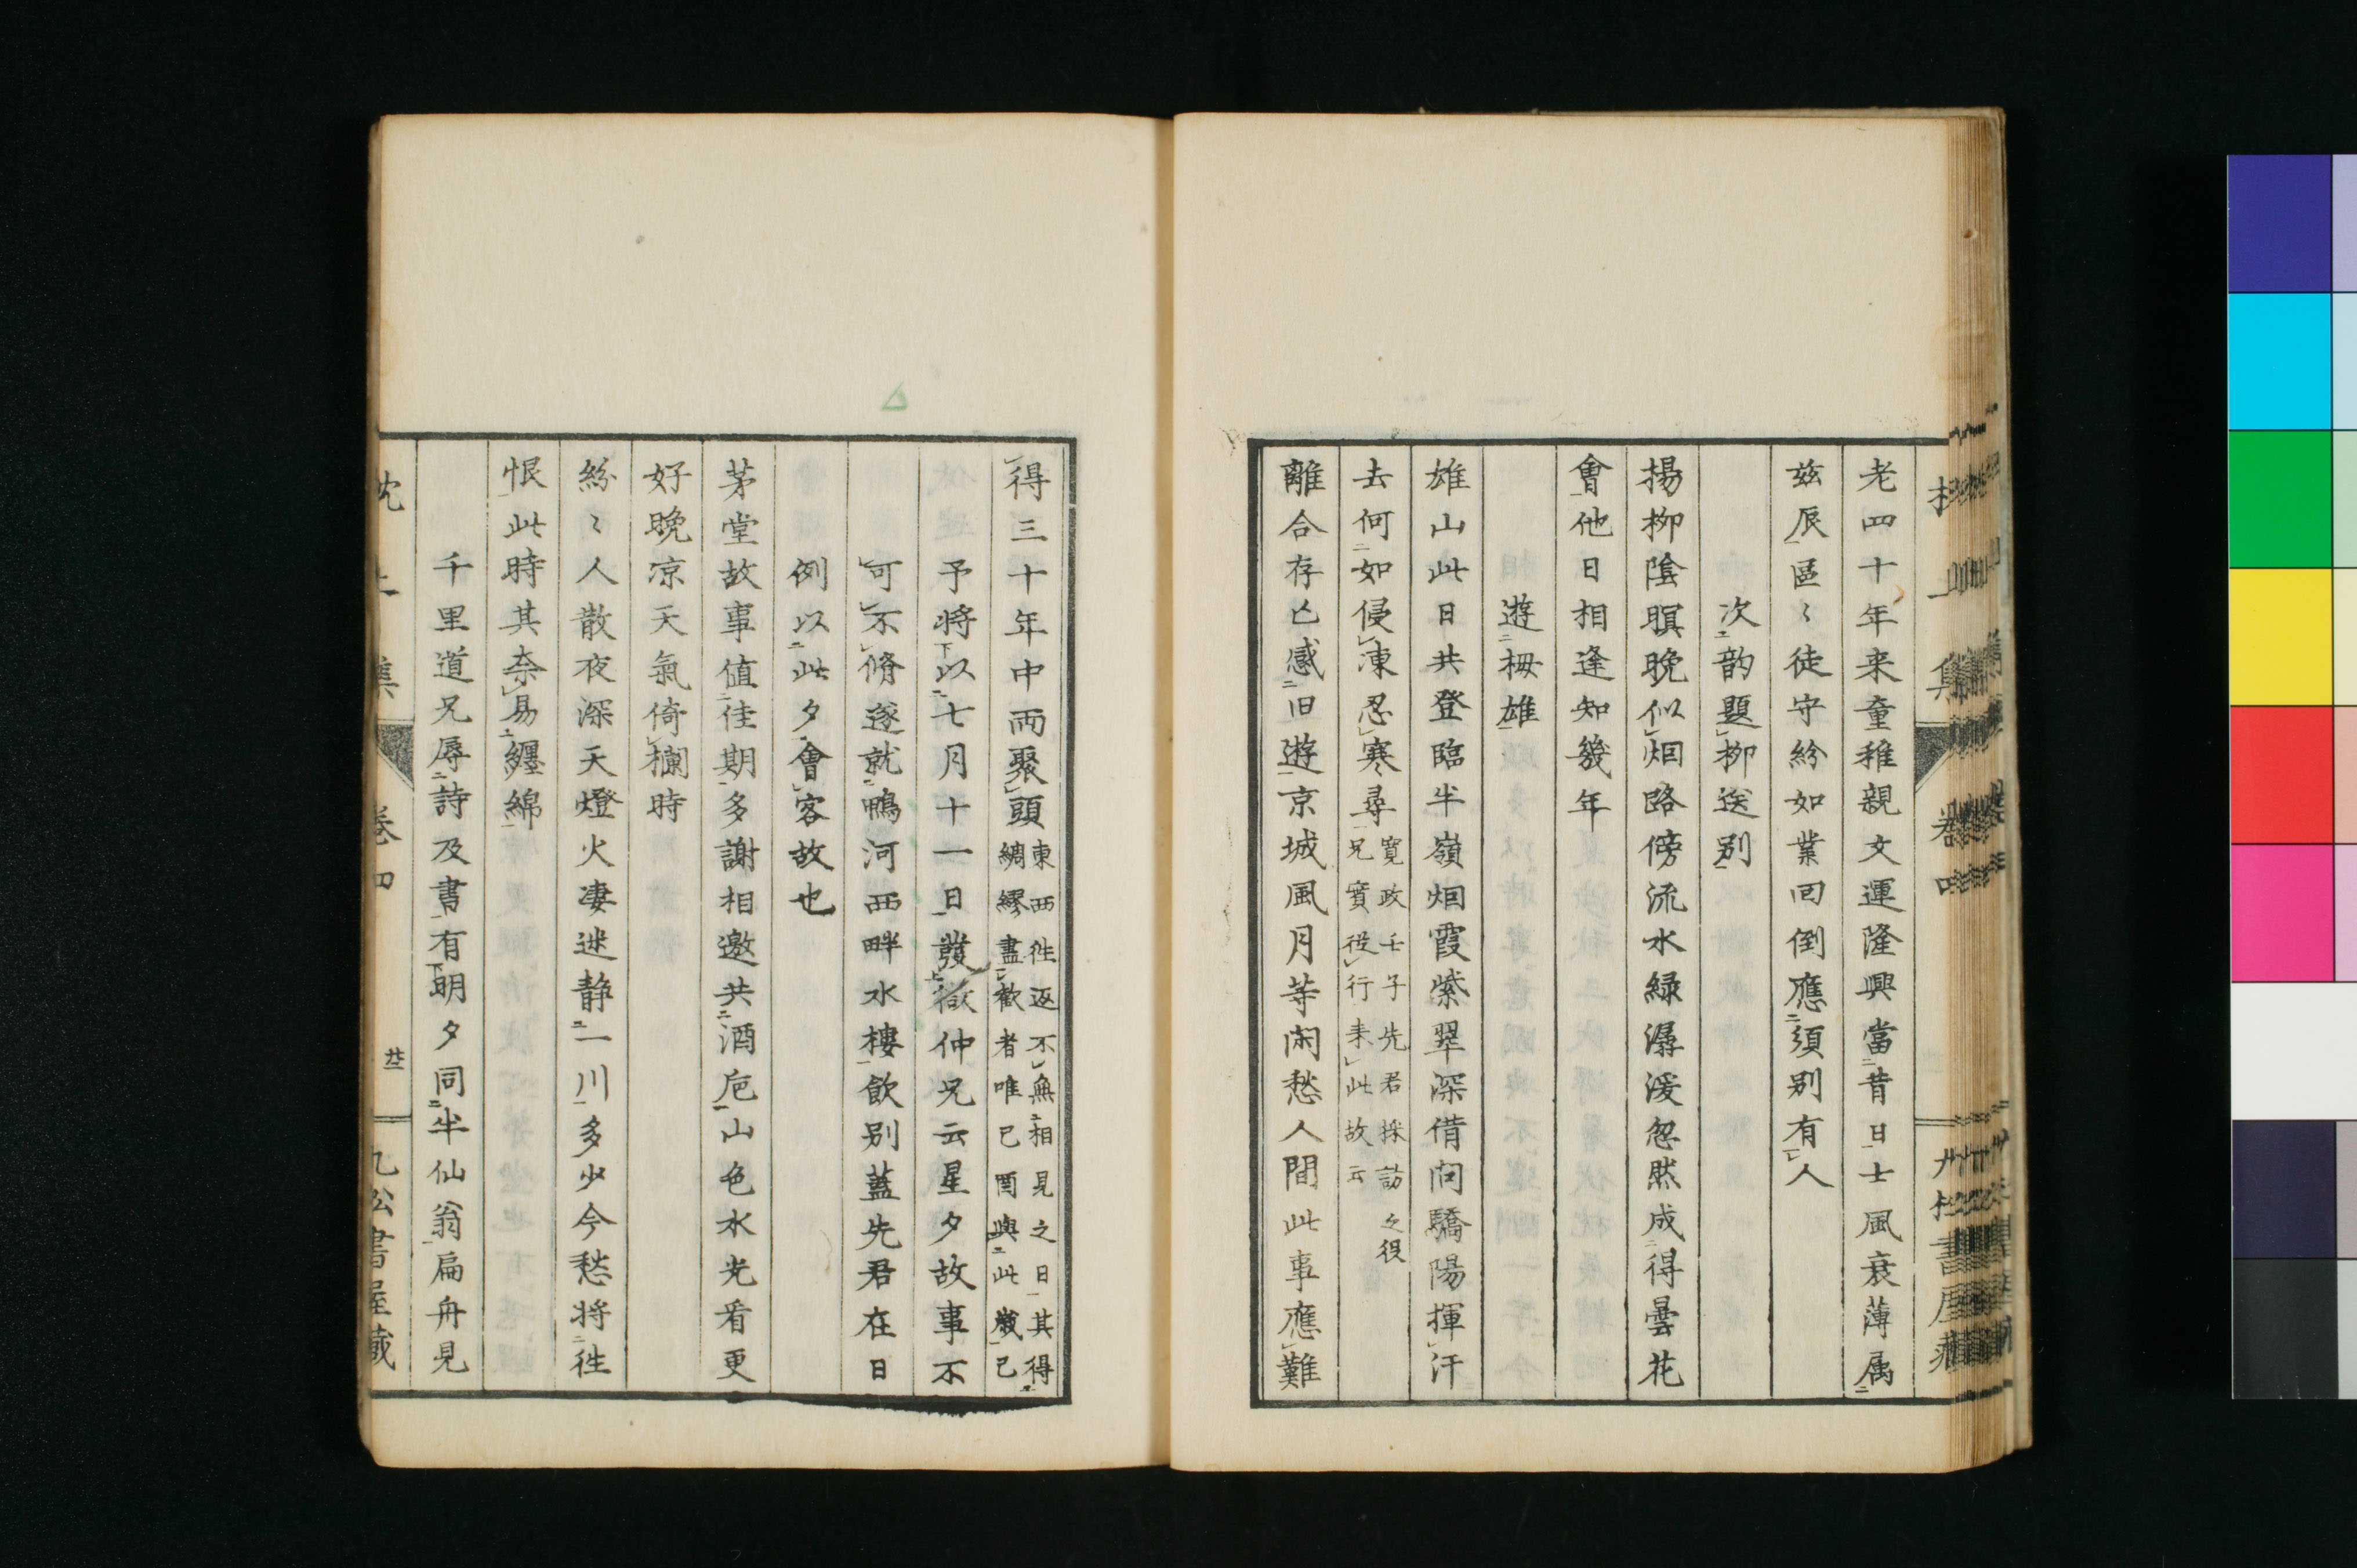 老四十年来童稚親文運隆興當昔日士風衰薄属
兹辰區〻徒守紛如業回倒應須別有人
次韵題柳送別
楊柳陰暝晩似烟路傍流水緑潺湲忽然成得曇花
會他日相逢知幾年
遊栂雄
雄山此日共登臨半嶺烟霞紫翠深借問驕陽揮汗
去何如侵凍忍寒尋
寛政壬子先君採訪之役
兄實従行来此故云
離合存亡感旧遊京城風月等闲愁人間此事應難
得三十年中両聚頭
東西徃返不無相見之日其得
綢繆盡歓者唯己酉與此歳已
予将以七月十一日發欲仲兄云星夕故事不
可不脩遂就鴨河西畔水樓飲別蓋先君在日
例以此夕會客故也
茅堂故事值佳期多謝相邀共酒巵山色水光看更
好晩凉天氣倚欄時
紛〻人散夜深天燈火凄迷静一川多少今愁将徃
恨此時其奈易纏綿
千里道兄辱詩及書有明夕同半仙翁扁舟見
枕上集
卷四
九松書屋蔵